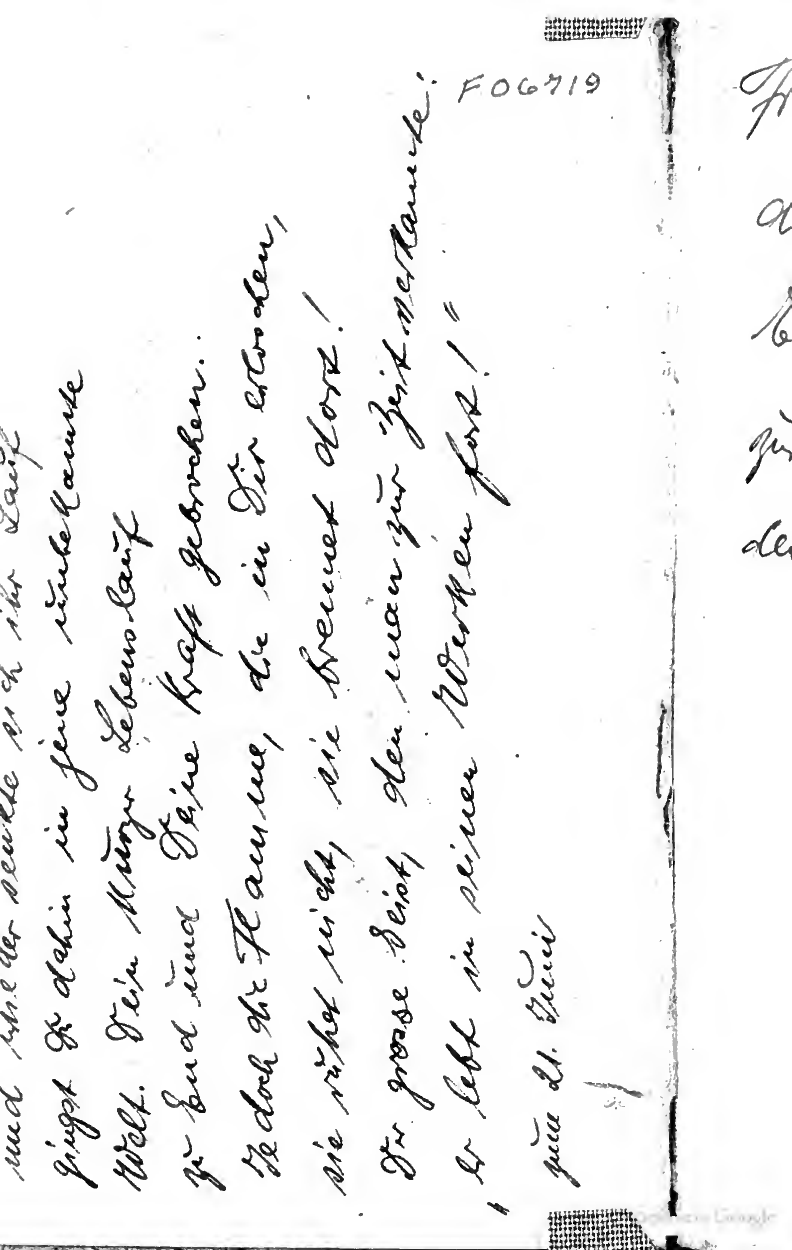 und wieder senkte sich ihr Lauf
gingst Du dahin in jene unbekannte
Welt. Dein kurzer Lebenslauf
zu End und Deine Kraft gebrochen..
Jedoch die Flamme, die in Dir erloschen,
sie ruhet nicht, sie brennet dort!
Der grosse Geist, den man zur Zeit verkannte:
"er lebt in seinen Werken fort!"
zum 21. Juni
F06719